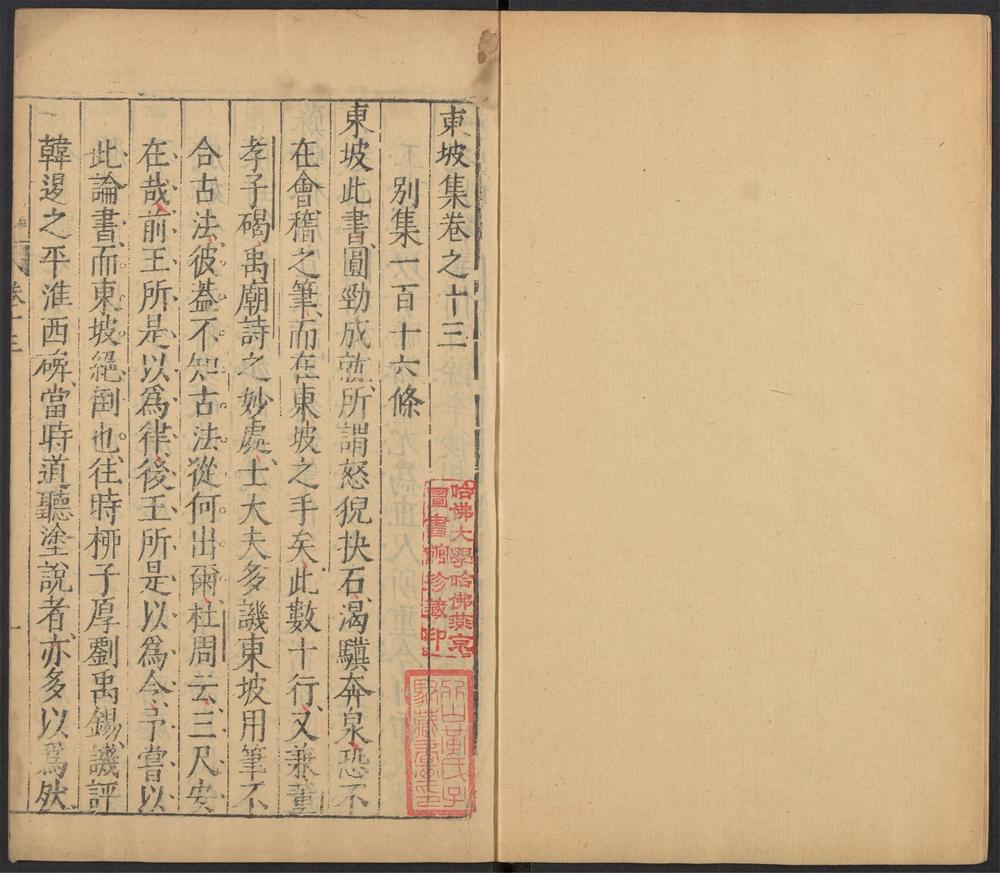 東坡集卷之十三
別集一百十六條
東坡此書、圓勁成就、所謂怒猊抉石、渴驥奔泉、恐不
在會稽之筆、而在東坡之手矣、此數十行、又兼董
孝子碣、禹廟詩之妙處、士大夫多譏東坡用筆不
合古法、彼葢不知古法從何出爾、杜周云、三尺安
在哉、前王所是以爲律、後王所是以爲令、予嘗以
此論書、而東坡絕倒也、往時柳子厚劉禹錫、譏評
韓退之平淮西碑、當時道聽塗說者、亦多以爲然、
卷十三
一
哈佛大學哈佛燕京
圖書館珍藏印